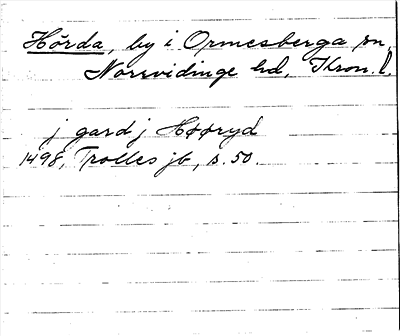 Hörda, by i Ormesberga sn,
Norrvidinge hd, Kron. l.
j gard j Høøryd
1498, Trolles jb, s. 50.